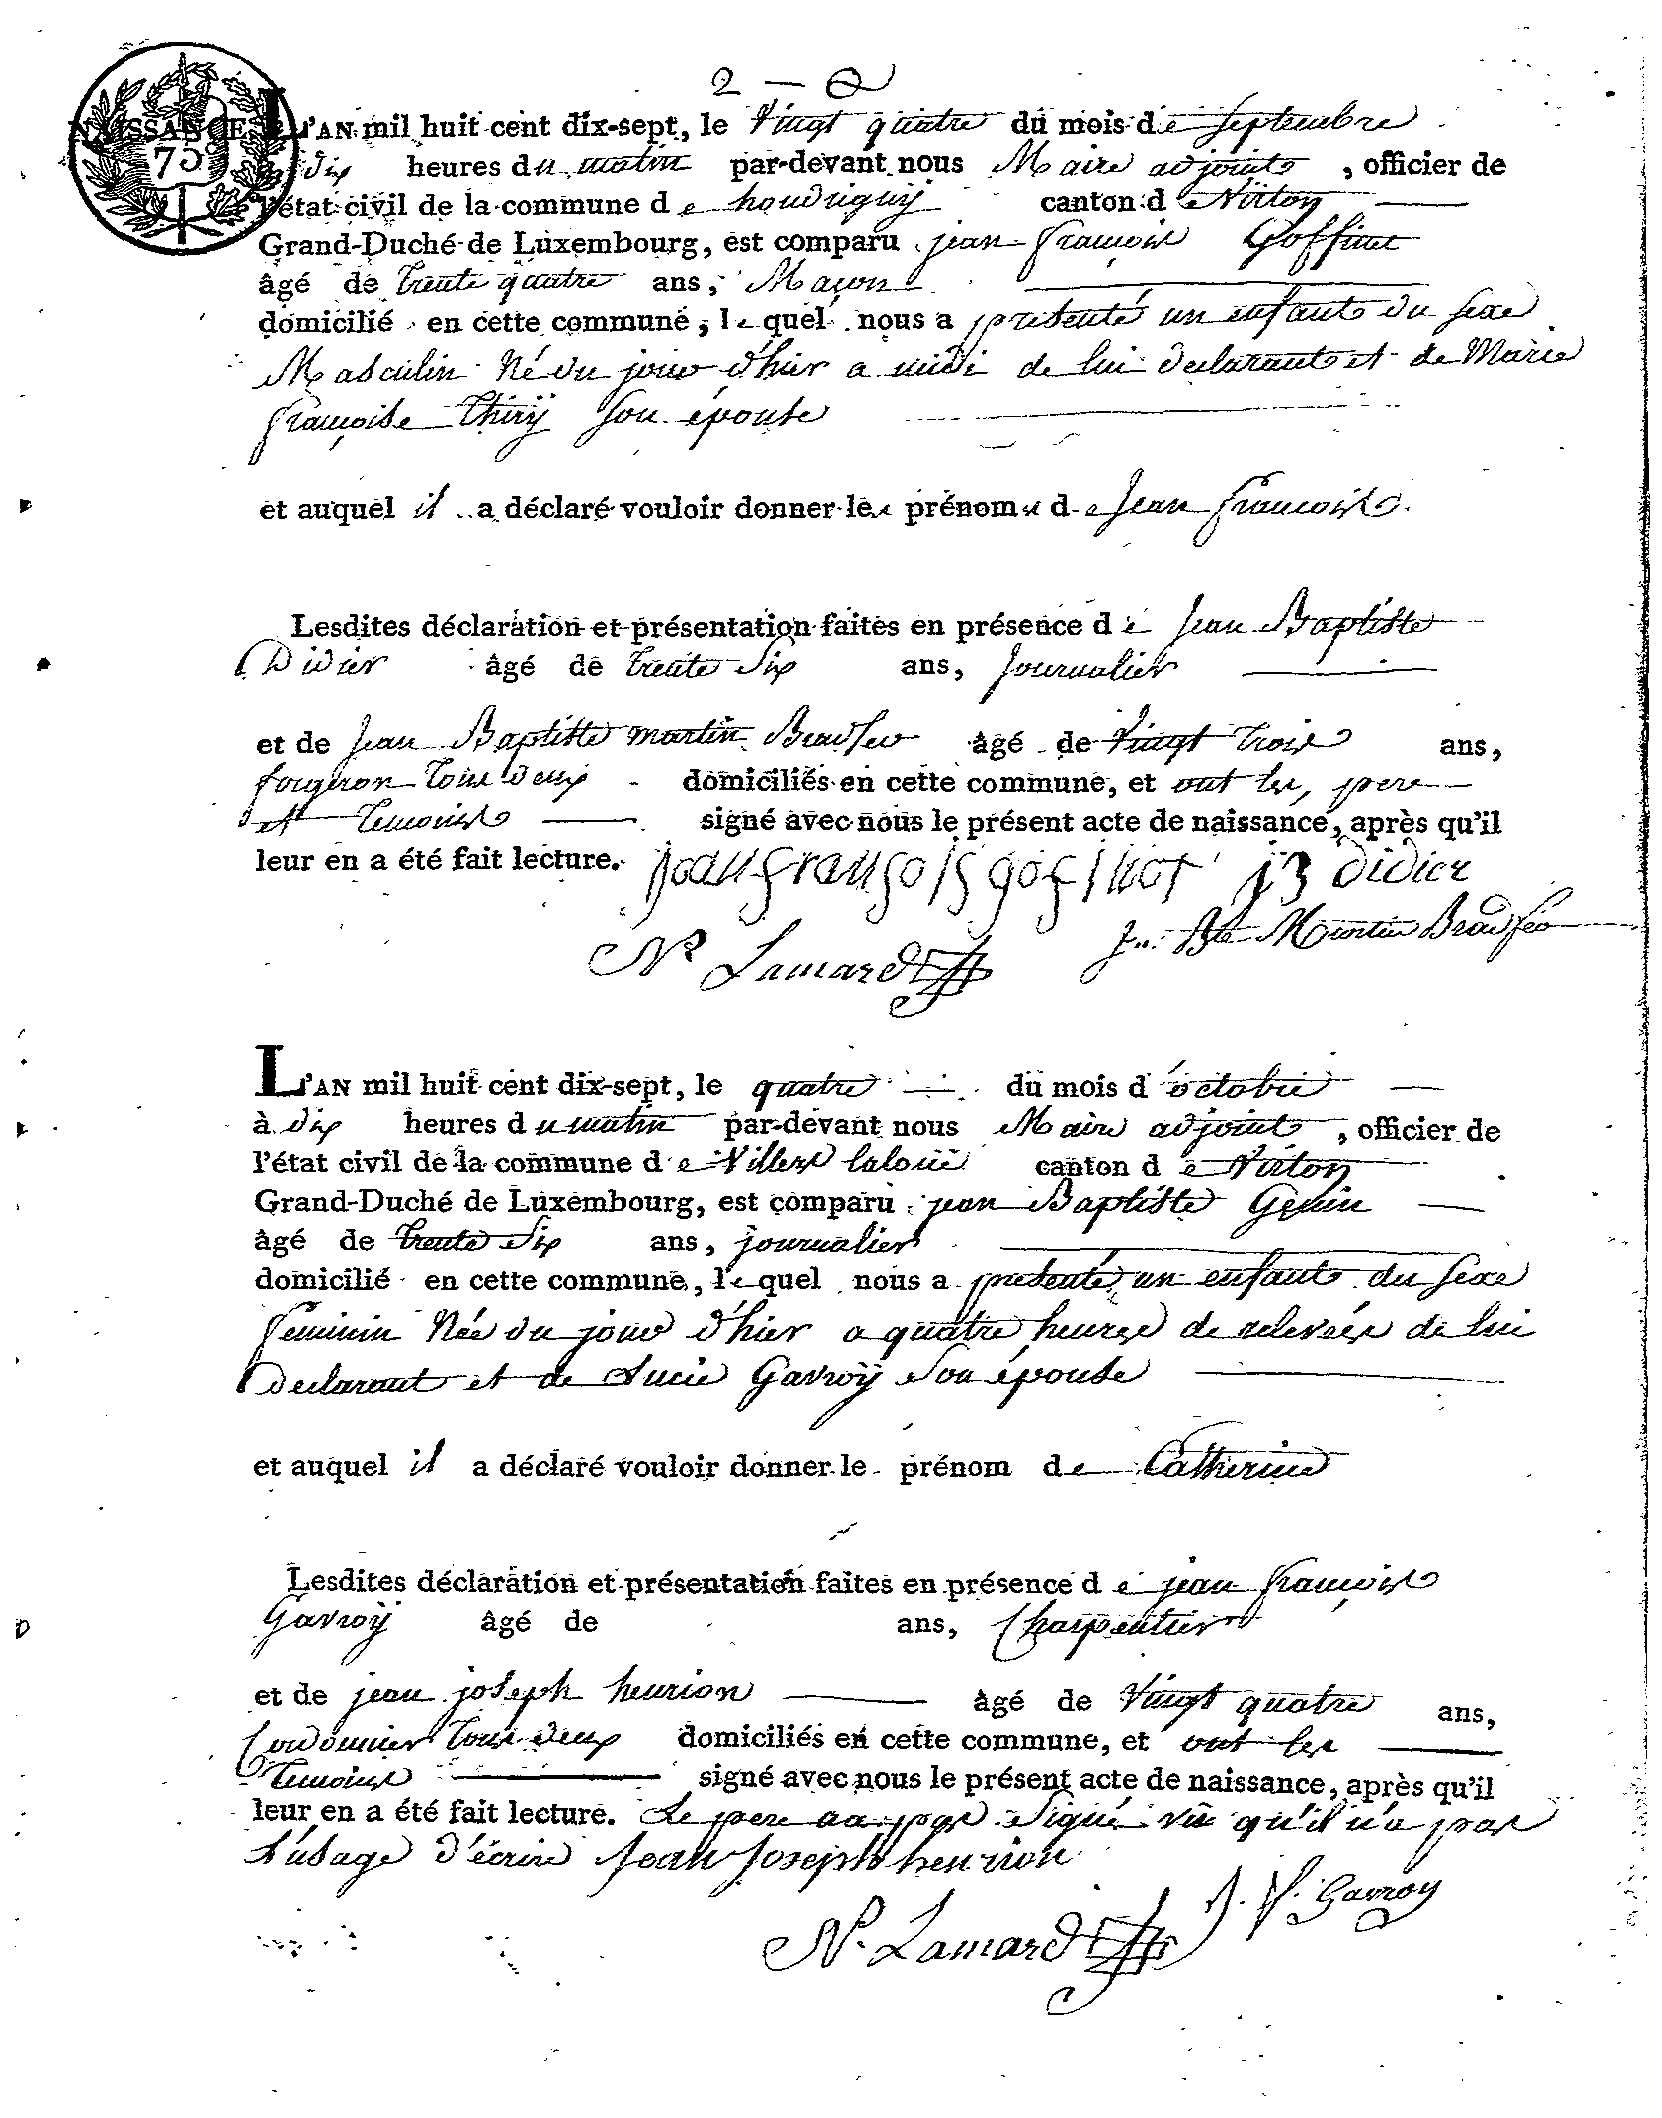 2 —
NAISSANCE L'AN mil huit cent dix-sept, le Vingt quatre du mois de Septembre
75
dix heures du matin par-devant nous Maire adjoints, officier de
l'état civil de la commune de houdrigny canton de Virton
Grand-Duché de Luxembourg, est comparu jean françois Goffinet
âgé de trente quatre ans, Maçon
domicilié en cette commune, lequel nous a presenté un enfants du sexe
Masculin Né du jour d'hier a midi de lui declarants et de Marie
françoise Thirÿ son épouse
et auquel il a déclaré vouloir donner les prénoms de Jean françois
Lesdites déclaration et présentation faites en présence de Jean Baptiste
Didier âgé de trente Six ans, Journalier
et de Jean Baptiste martin âgé de Vingt trois ans,
forgeron tous deux domiciliés en cette commune, et ont les pere
et temoins signé avec nous le présent acte de naissance, après qu'il
leur en a été fait lecture. jean françois gofinet JB didier
Jn Bte Martin
Lamard
L'AN mil huit cent dix-sept, le quatre du mois d'octobre
à dix heures du matin par-devant nous Maire adjoints, officier de
l'état civil de la commune de Villers laloüe canton de Virton
Grand-Duché de Luxembourg, est comparu jean Baptiste
âgé de trente Six ans, journalier
domicilié en cette commune, lequel nous a presenté un enfants du sexe
feminin Née du jour d'hier a quatre heures de relevées de lui
declarant et de Lucie Gavroÿ son épouse
et auquel il a déclaré vouloir donner le prénom de Catherine
Lesdites déclaration et présentation faites en présence de jean françois
Gavroÿ âgé de ans, Charpentier
et de jean joseph henrion âgé de Vingt quatre ans,
Cordonnier tous deux domiciliés en cette commune, et ont les
temoins signé avec nous le présent acte de naissance, après qu'il
leur en a été fait lecture. Le pere na pas signé vû qu'il n'a pas
l'usage d'écrire Jean Joseph henrion
J. f. Gavroy
N. Lamard